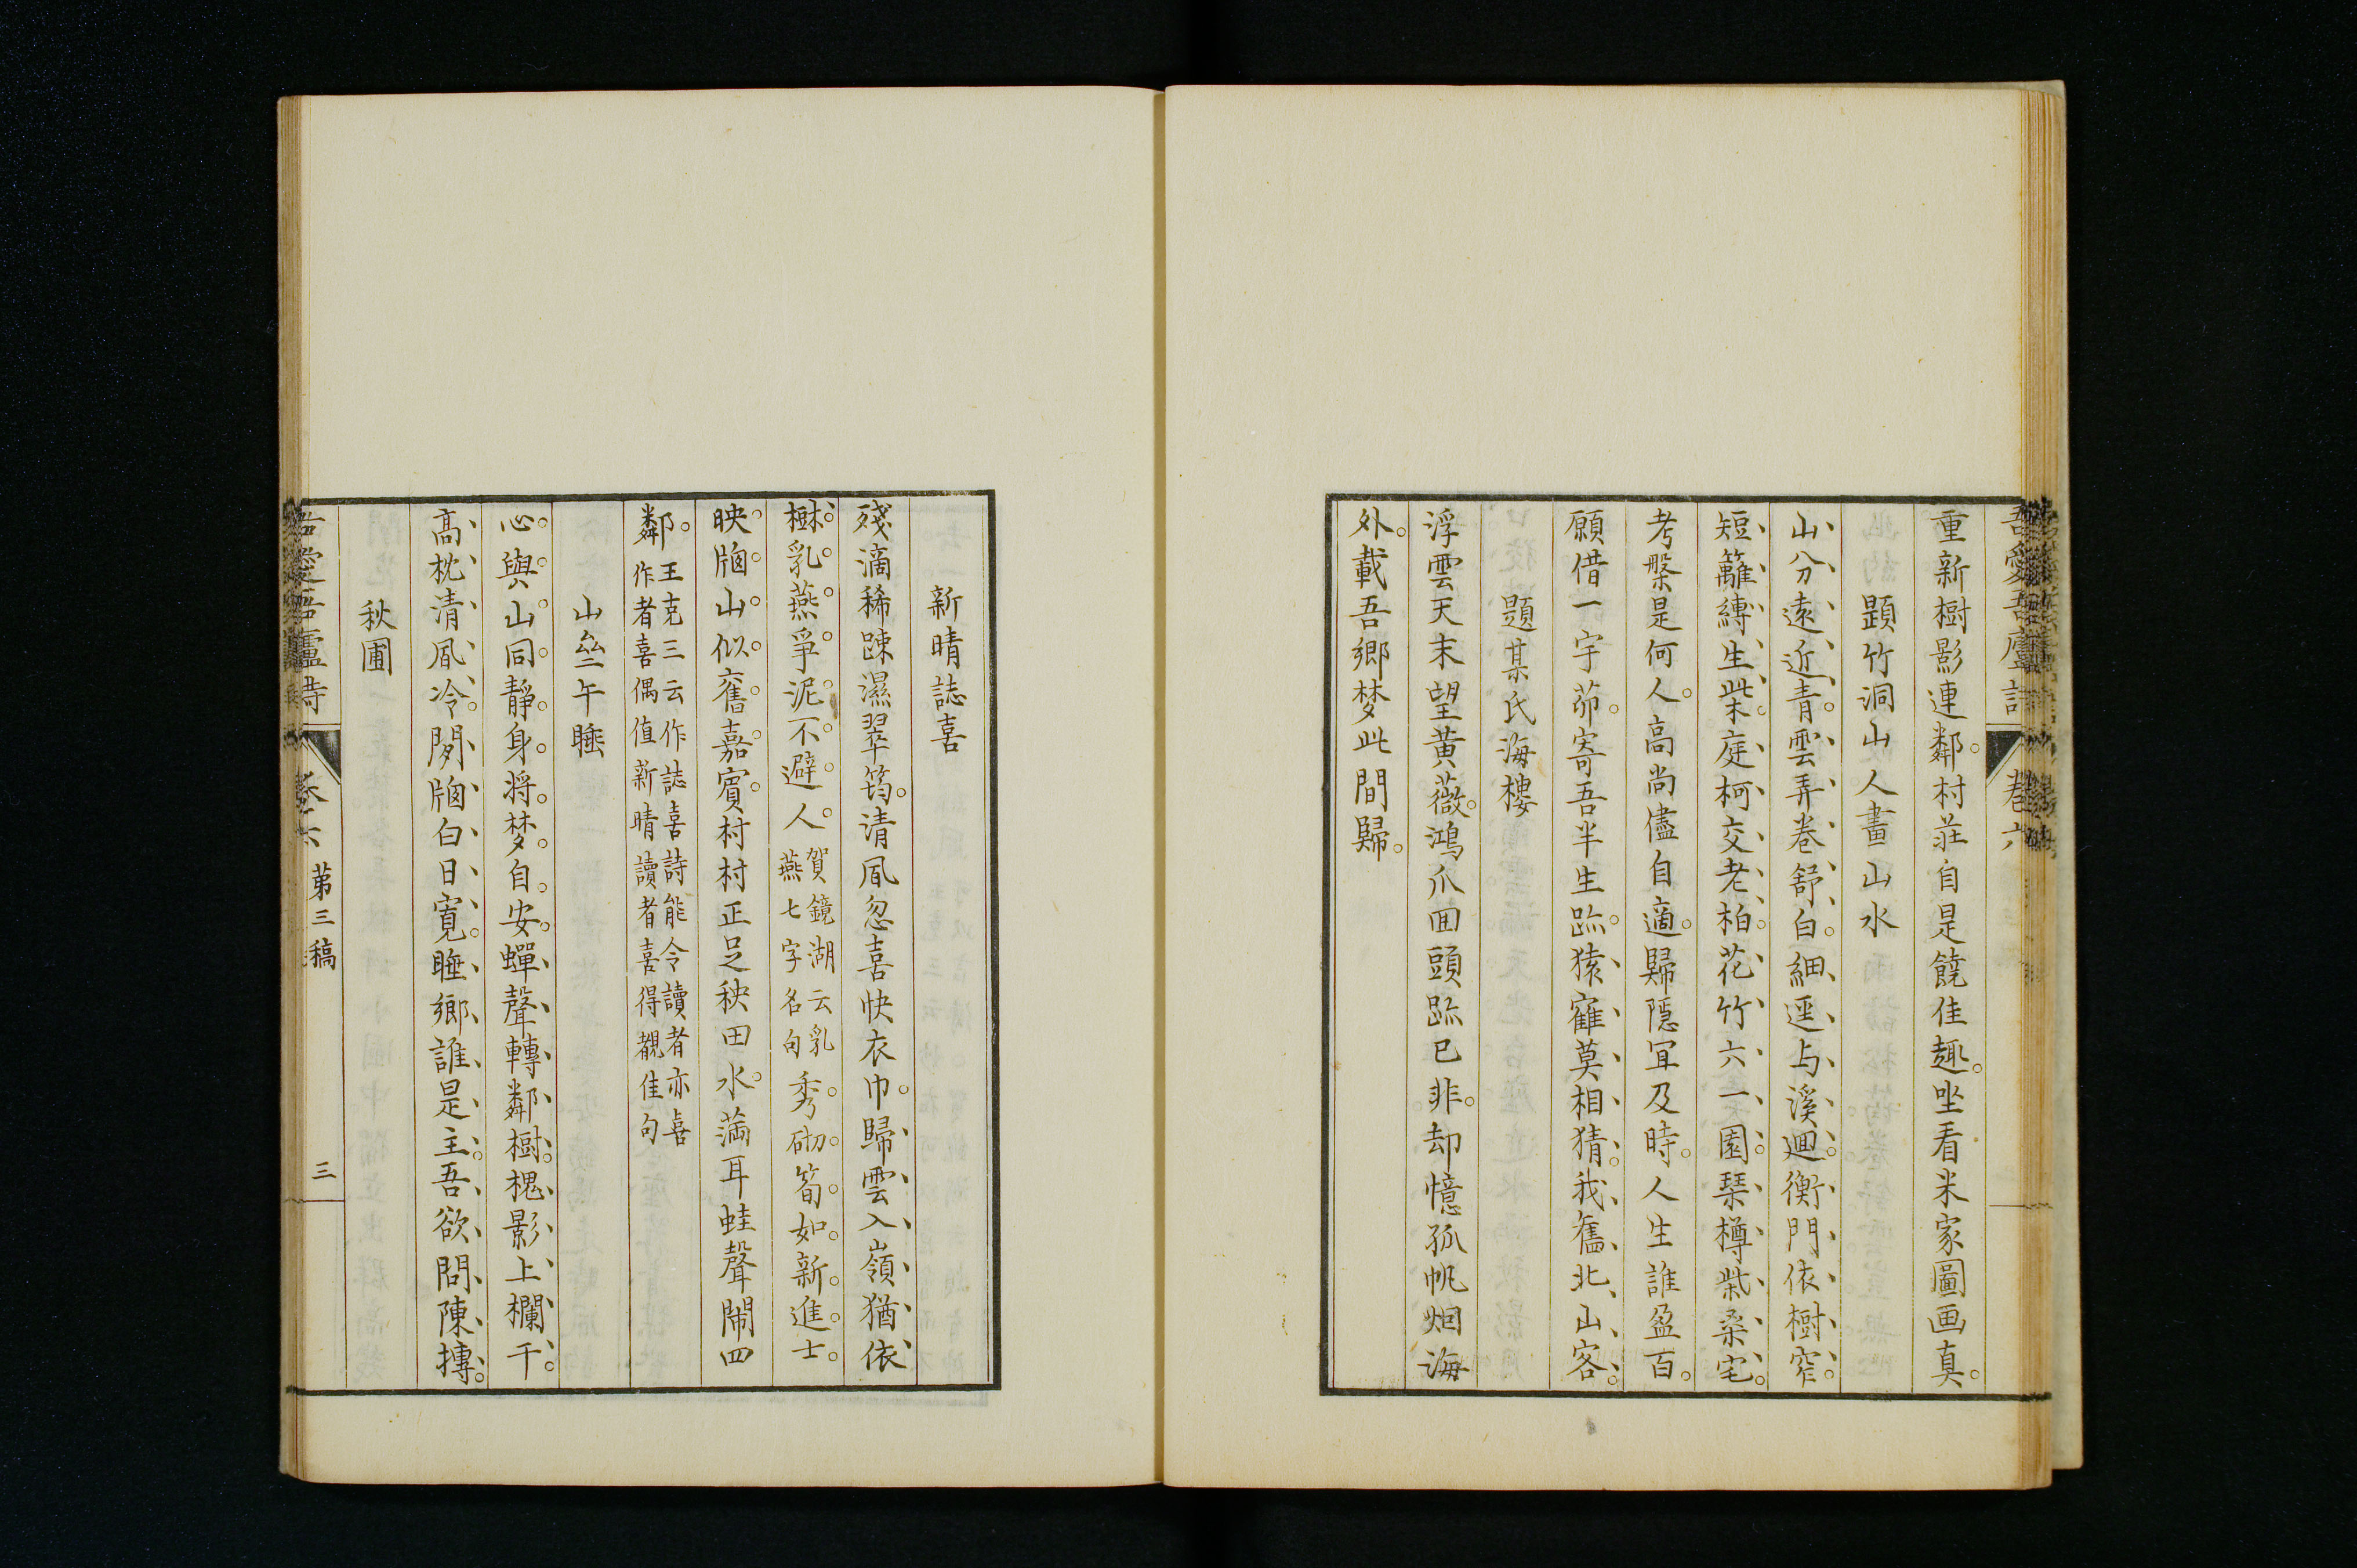 吾愛吾廬詩 卷六
重新樹影連鄰。村莊自是饒佳趣。坐看米家圖画真。
題竹洞山人畫山水
山分遠近青。雲弄卷舒白。細逕与溪迴。衡門依樹窄。
短籬縛生柴。庭柯交老柏。花竹六一園。琴樽柴桑宅。
考槃是何人。高尚儘自適。歸隱宜及時。人生誰盈百。
願借一宇茆。寄吾半生跡。猿寉莫相猜。我舊北山客。
題某氏海樓
浮雲天末望黃薇。鴻爪囬頭跡已非。却憶孤帆烟海
外。載吾鄉梦此間歸。
新晴誌喜
殘滴稀踈濕翠筠。清風忽喜快衣巾。歸雲入嶺猶依
樹。乳燕爭泥不避人。賀鏡湖云乳
燕七字名句秀砌筍如新進士。
映牕山似舊嘉賓。村村正足秧田水。滿耳蛙聲鬧四
鄰。王克三云作誌喜詩能令讀者亦喜
作者喜偶值新晴讀者喜得覩佳句
山堂午睡
心與山同靜。身将梦自安。蟬聲轉鄰樹。槐影上欄干。
高枕清風冷。閑牕白日寬。睡鄉誰是主。吾欲問陳摶。
秋圃
吾愛吾廬詩 卷六 苐三稿 三